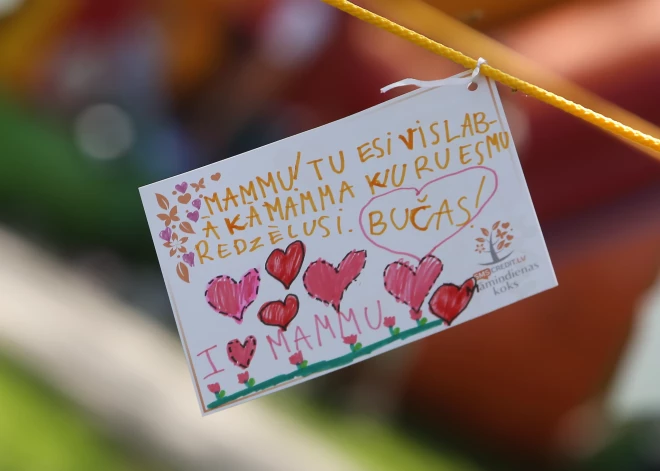 MAMMU! TU ESI VISLAB-
A KĀ MAMMA KURU ESMU
REDZĒLUSI. BUČAS!
I MAMMU
SMSCREDIT.LV
āmindienas
koks